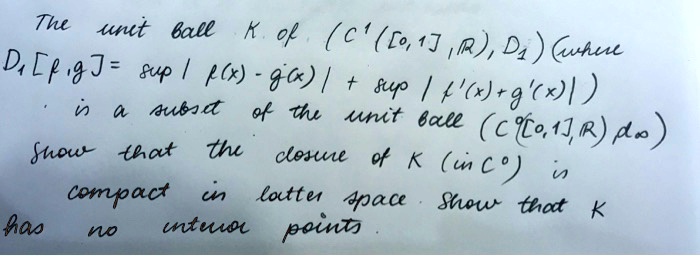 The unit ball K of (C¹([0,1],ℝ), D₁) (where
D₁[f,g] = sup | f(x) - g(x) | + sup | f'(x) + g'(x) | )
is a subset of the unit ball (C⁰([0,1],ℝ) d∞)
Show that the closure of K (in C⁰) is
compact in latter space. Show that K
has no interior points.